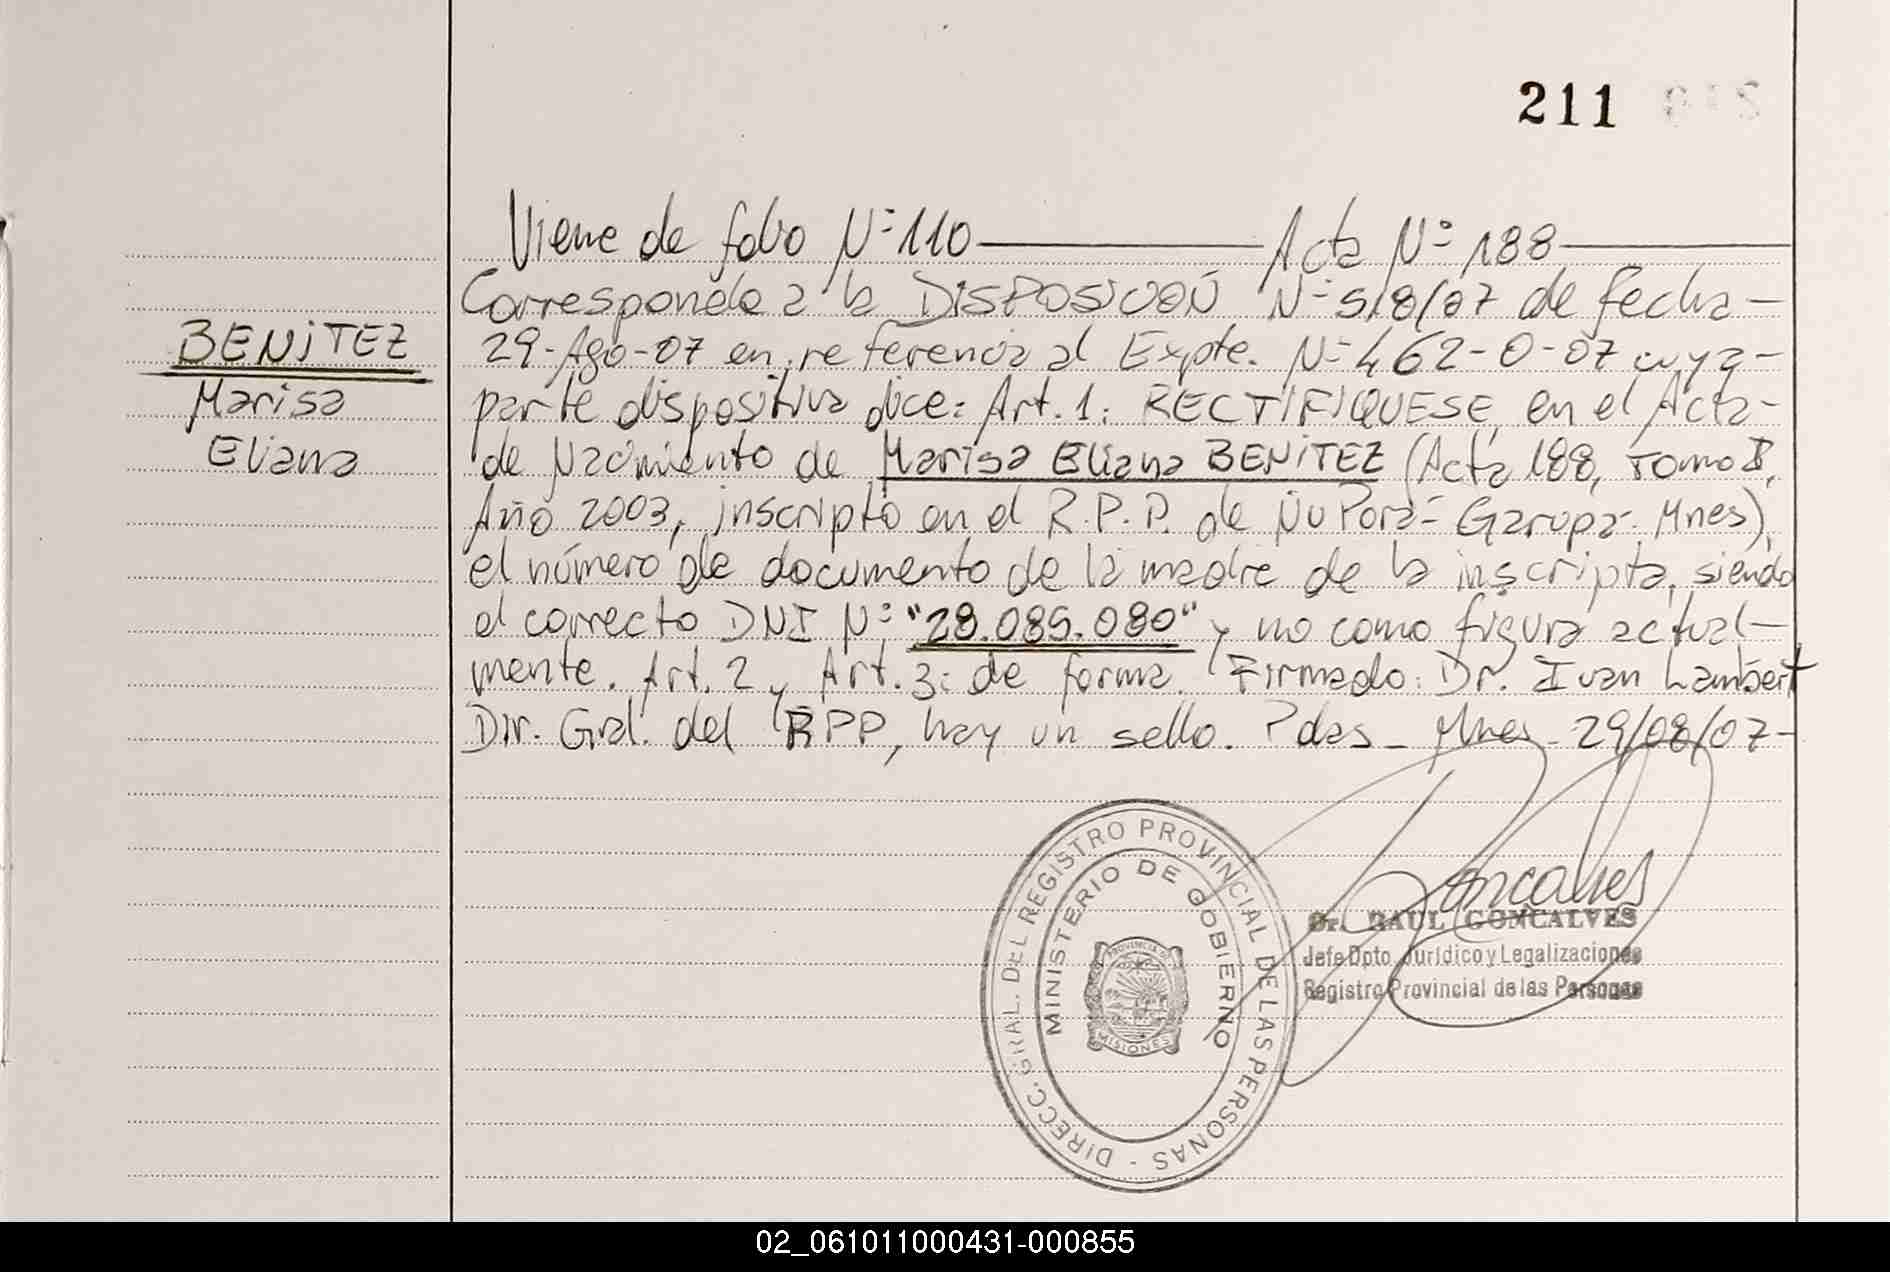 211
Viene de folio Nº 110 — Acta Nº 188 —
Corresponde a la DISPOSICION Nº 518/07 de fecha -
BENITEZ
29-Ago-07 en referencia al Expte. Nº 462-0-07 cuya -
Marisa
parte dispositiva dice: Art. 1: RECTIFIQUESE, en el Acta -
Eliana
de Nacimiento de Marisa Eliana BENITEZ (Acta 188, Tomo I,
Año 2003, inscripto en el R.P.P. de Ñu Porá - Garupa - Mnes),
el número de documento de la madre de la inscripta, siendo
el correcto DNI Nº "28.085.080" y no como figura actual-
mente. Art. 2 y Art. 3: de forma. Firmado: Dr. Ivan Lambert
Dir. Gral. del RPP, hay un sello. Pdas - Mnes - 29/08/07 -
DIRECC. GRAL. DEL REGISTRO PROVINCIAL DE LAS PERSONAS -
MINISTERIO DE GOBIERNO
PROVINCIA DE
MISIONES
Goncalves
Dr. RAUL GONCALVES
Jefe Dpto. Jurídico y Legalizaciones
Registro Provincial de las Personas
02_061011000431-000855